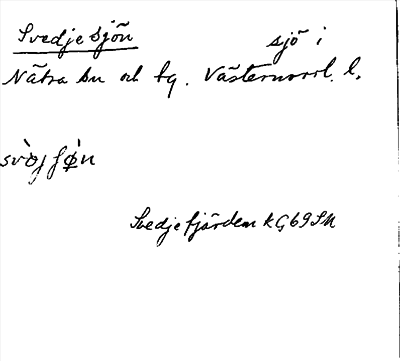 Svedjesjön sjö i
Nätra sn och tg. Västernorrl. l.
Svedjefjärden kG69SM